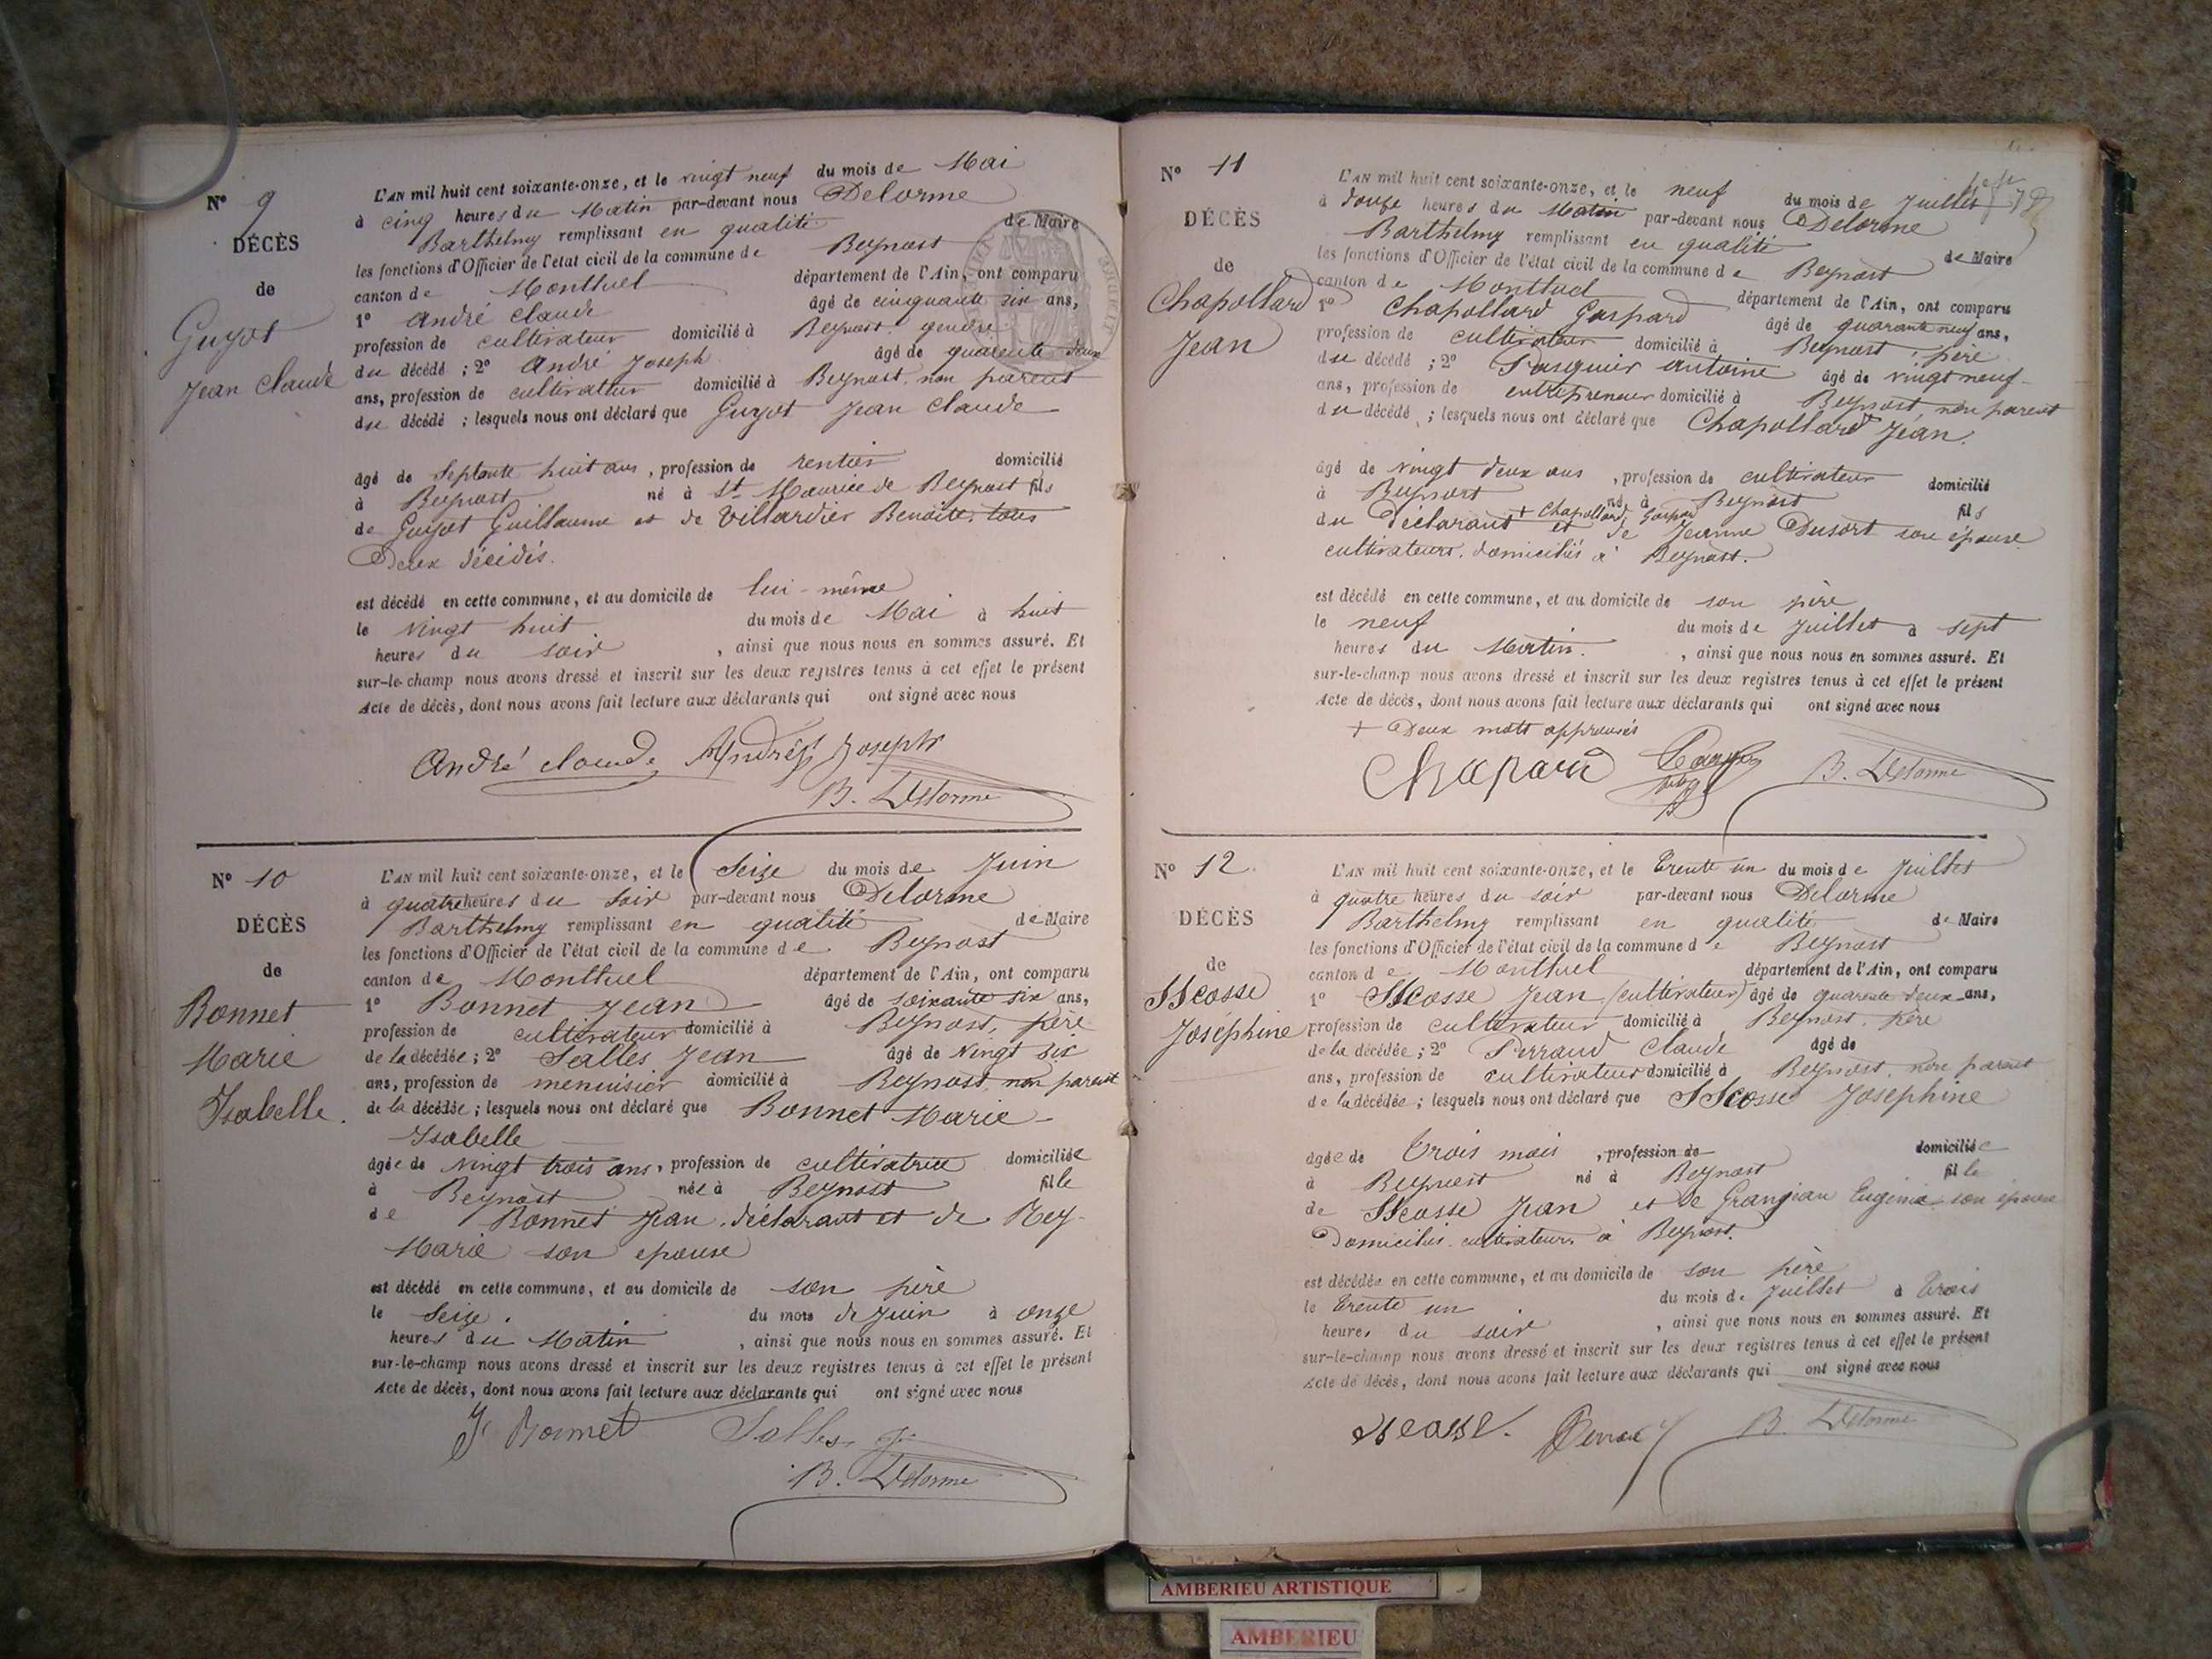 N° 9
DÉCÈS
de
Guyot
Jean Claude
L'AN mil huit cent soixante-onze, et le vingt neuf du mois de Mai
à cinq heures du Matin par-devant nous Delorme
Barthelmy remplissant en qualité de Maire
les fonctions d'Officier de l'état civil de la commune de Beynost
canton de Montluel département de l'Ain, ont comparu
1° André Claude âgé de cinquante six ans,
profession de cultivateur domicilié à Beynost. gendre
du décédé ; 2° André Joseph âgé de quarente deux
ans, profession de cultivateur domicilié à Beynost, non parent
du décédé ; lesquels nous ont déclaré que Guyot Jean Claude
âgé de Septente huit ans, profession de rentier domicilié
à Beynost né à St Maurice de Beynost fils
de Guyot Guillaume et de Villardier Benoite, tous
Deux décédés.
est décédé en cette commune, et au domicile de lui-même
le vingt huit du mois de Mai à huit
heures du soir, ainsi que nous nous en sommes assuré. Et
sur-le-champ nous avons dressé et inscrit sur les deux registres tenus à cet effet le présent
Acte de décès, dont nous avons fait lecture aux déclarants qui ont signé avec nous
André claude André Joseph
B. Delorme
N° 10
DÉCÈS
de
Bonnet
Marie
Isabelle.
L'AN mil huit cent soixante-onze, et le Seize du mois de Juin
à quatre heures du soir par-devant nous Delorme
Barthelmy remplissant en qualité de Maire
les fonctions d'Officier de l'état civil de la commune de Beynost
canton de Montluel département de l'Ain, ont comparu
1° Bonnet Jean âgé de soixante six ans,
profession de cultivateur domicilié à Beynost, père
de la décédée ; 2° Salles Jean âgé de vingt six
ans, profession de menuisier domicilié à Beynost, non parent
de la décédée ; lesquels nous ont déclaré que Bonnet Marie
Isabelle
âgée de vingt trois ans, profession de cultivatrice domiciliée
à Beynost née à Beynost fille
de Bonnet Jean, déclarant et de Rey
Marie son epouse
est décédé en cette commune, et au domicile de son père
le Seize du mois de Juin à onze
heures du Matin, ainsi que nous nous en sommes assuré. Et
sur-le-champ nous avons dressé et inscrit sur les deux registres tenus à cet effet le présent
Acte de décès, dont nous avons fait lecture aux déclarants qui ont signé avec nous
J Bonnet Salles
B. Delorme
N° 11
DÉCÈS
de
Chapollard
Jean
L'AN mil huit cent soixante-onze, et le neuf du mois de Juillet
à douze heures du Matin par-devant nous Delorme
Barthelmy remplissant en qualité de Maire
les fonctions d'Officier de l'état civil de la commune de Beynost
canton de Montluel département de l'Ain, ont comparu
1° Chapollard Gaspard âgé de quarante neuf ans,
profession de cultivateur domicilié à Beynost, père
du décédé ; 2° Pasquier Antoine âgé de vingt neuf
ans, profession de entrepreneur domicilié à Beynost, non parent
du décédé ; lesquels nous ont déclaré que Chapollard Jean.
âgé de vingt deux ans, profession de cultivateur domicilié
à Beynost né à Beynost fils
du Déclarant + Chapollard Gaspar et de Jeanne Dusort son épouse
cultivateurs. domiciliés à Beynost.
est décédé en cette commune, et au domicile de son père
le neuf du mois de Juillet à sept
heures du Matin., ainsi que nous nous en sommes assuré. Et
sur-le-champ nous avons dressé et inscrit sur les deux registres tenus à cet effet le présent
Acte de décès, dont nous avons fait lecture aux déclarants qui ont signé avec nous
+ Deux mots approuvés
B. Delorme
N° 12
DÉCÈS
de
SScosse
Joséphine
L'AN mil huit cent soixante-onze, et le trente un du mois de Juillet
à quatre heures du soir par-devant nous Delorme
Barthelmy remplissant en qualité de Maire
les fonctions d'Officier de l'état civil de la commune de Beynost
canton de Montluel département de l'Ain, ont comparu
1° SScosse Jean (cultivateur) âgé de quarente deux ans,
profession de cultivateur domicilié à Beynost, père
de la décédée ; 2° Perraud Claude âgé de
ans, profession de cultivateur domicilié à Beynost, non parent
de la décédée ; lesquels nous ont déclaré que SScosse Joséphine
âgée de trois mois, profession de domiciliée
à Beynost né à Beynost fille
de SScosse Jean et de Grangian Eugénie son épouse
Domiciliés cultivateurs à Beynost.
est décédée en cette commune, et au domicile de son père
le trente un du mois de Juillet à trois
heures du soir, ainsi que nous nous en sommes assuré. Et
sur-le-champ nous avons dressé et inscrit sur les deux registres tenus à cet effet le présent
Acte de décès, dont nous avons fait lecture aux déclarants qui ont signé avec nous
B. Delorme
AMBERIEU ARTISTIQUE
AMBERIEU